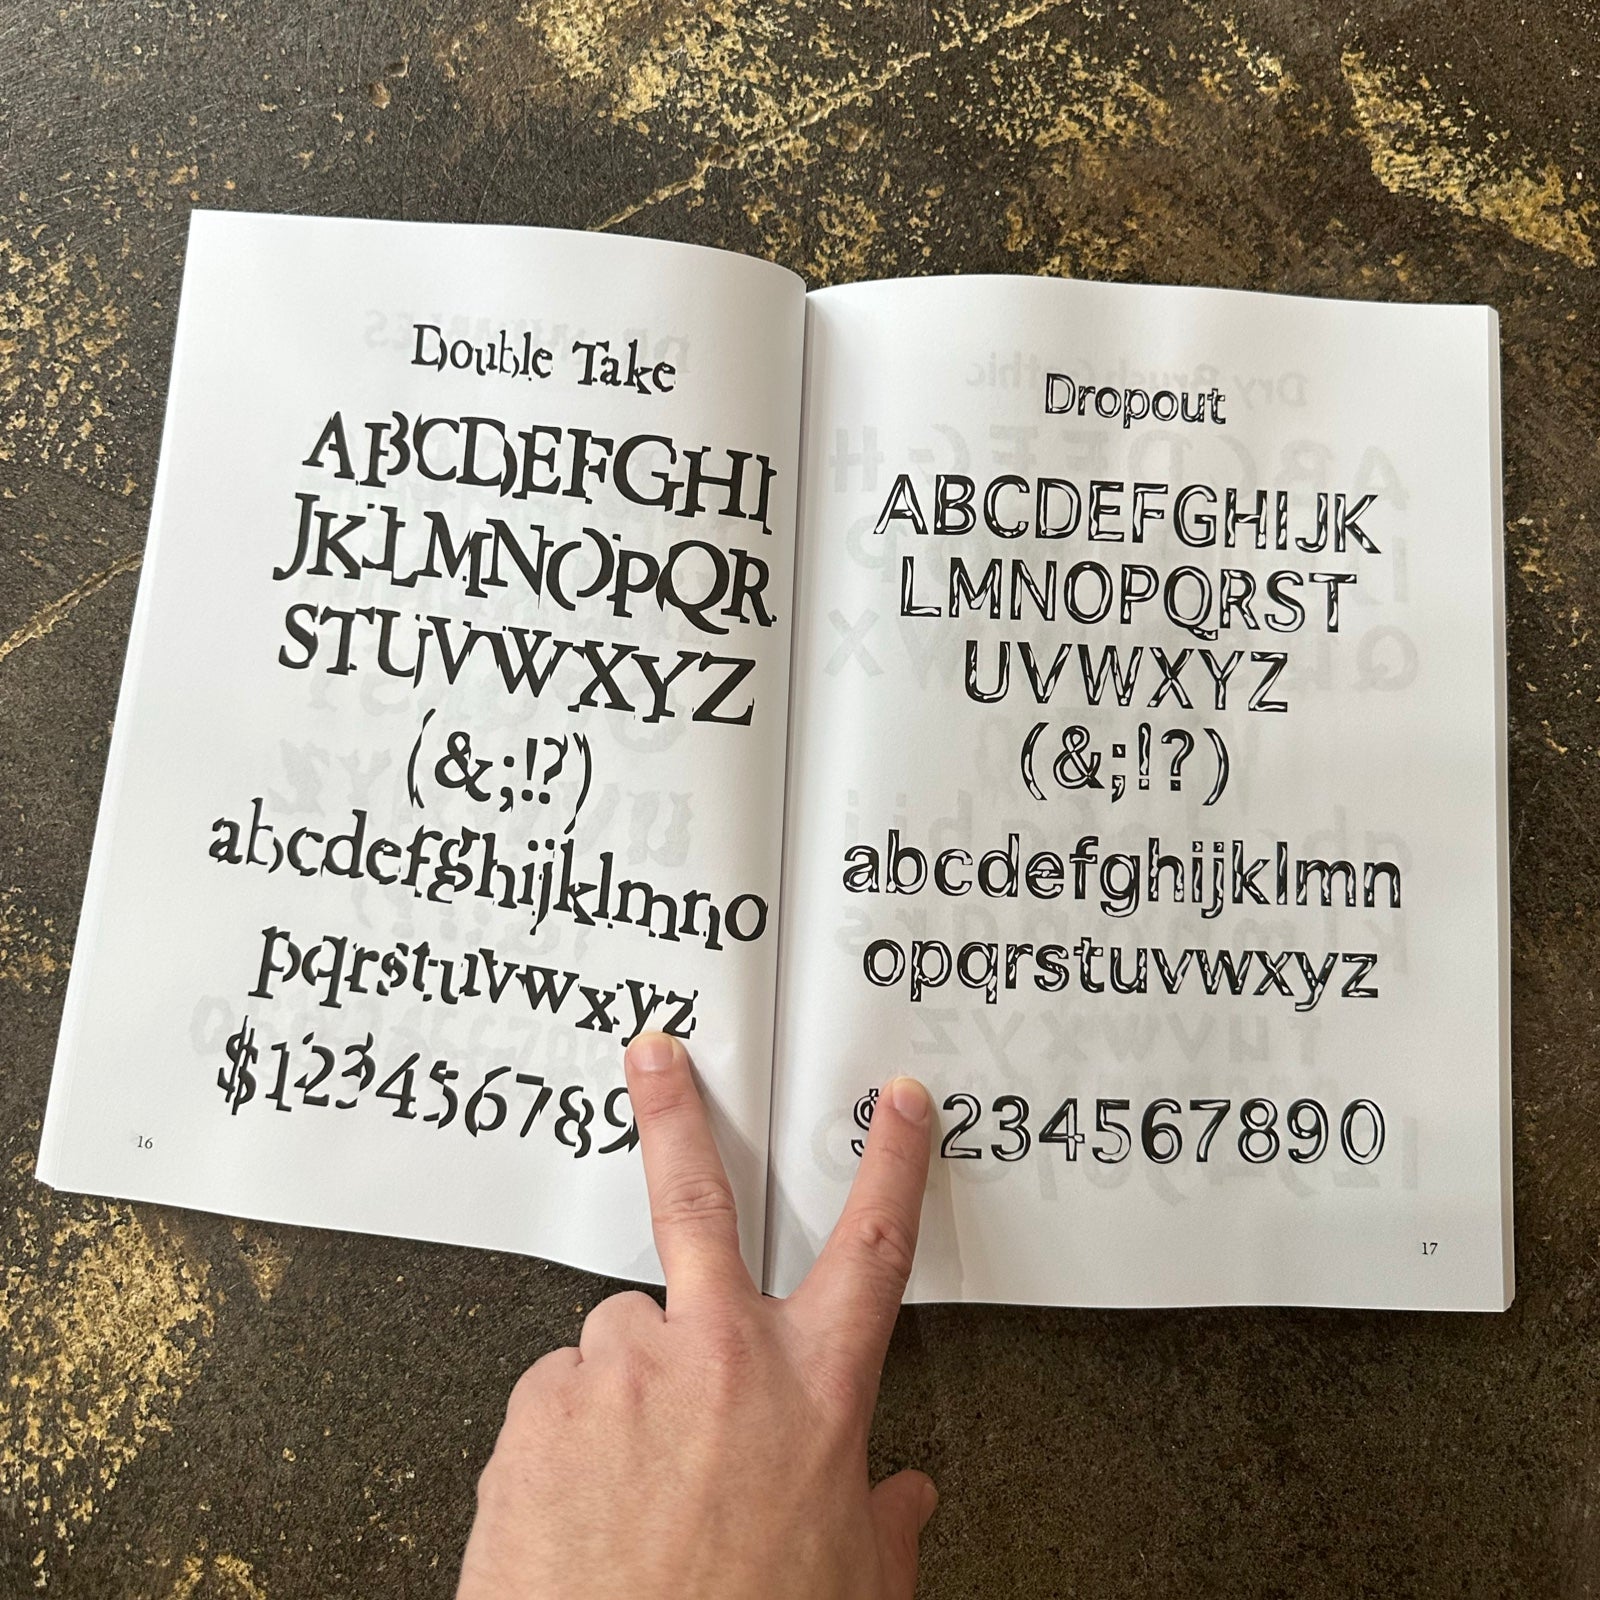 Double Take
ABCDEFGHI
JKLMNOPQR
STUVWXYZ
(&;!?)
abcdefghijklmno
pqrstuvwxyz
$123456789
16
Dropout
ABCDEFGHIJK
LMNOPQRST
UVWXYZ
(&;!?)
abcdefghijklmn
opqrstuvwxyz
$234567890
17